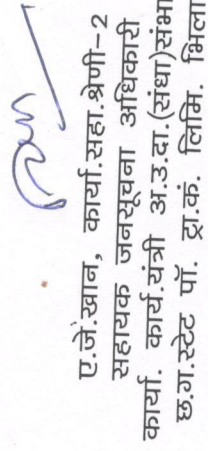 ए.जे.खान, कार्या.सहा.श्रेणी-2
सहायक जनसूचना अधिकारी
कार्या. कार्य.यंत्री अ.उ.दा.(संधा)संभा
छ.ग.स्टेट पॉ. ट्रा.कं. लिमि. भिला